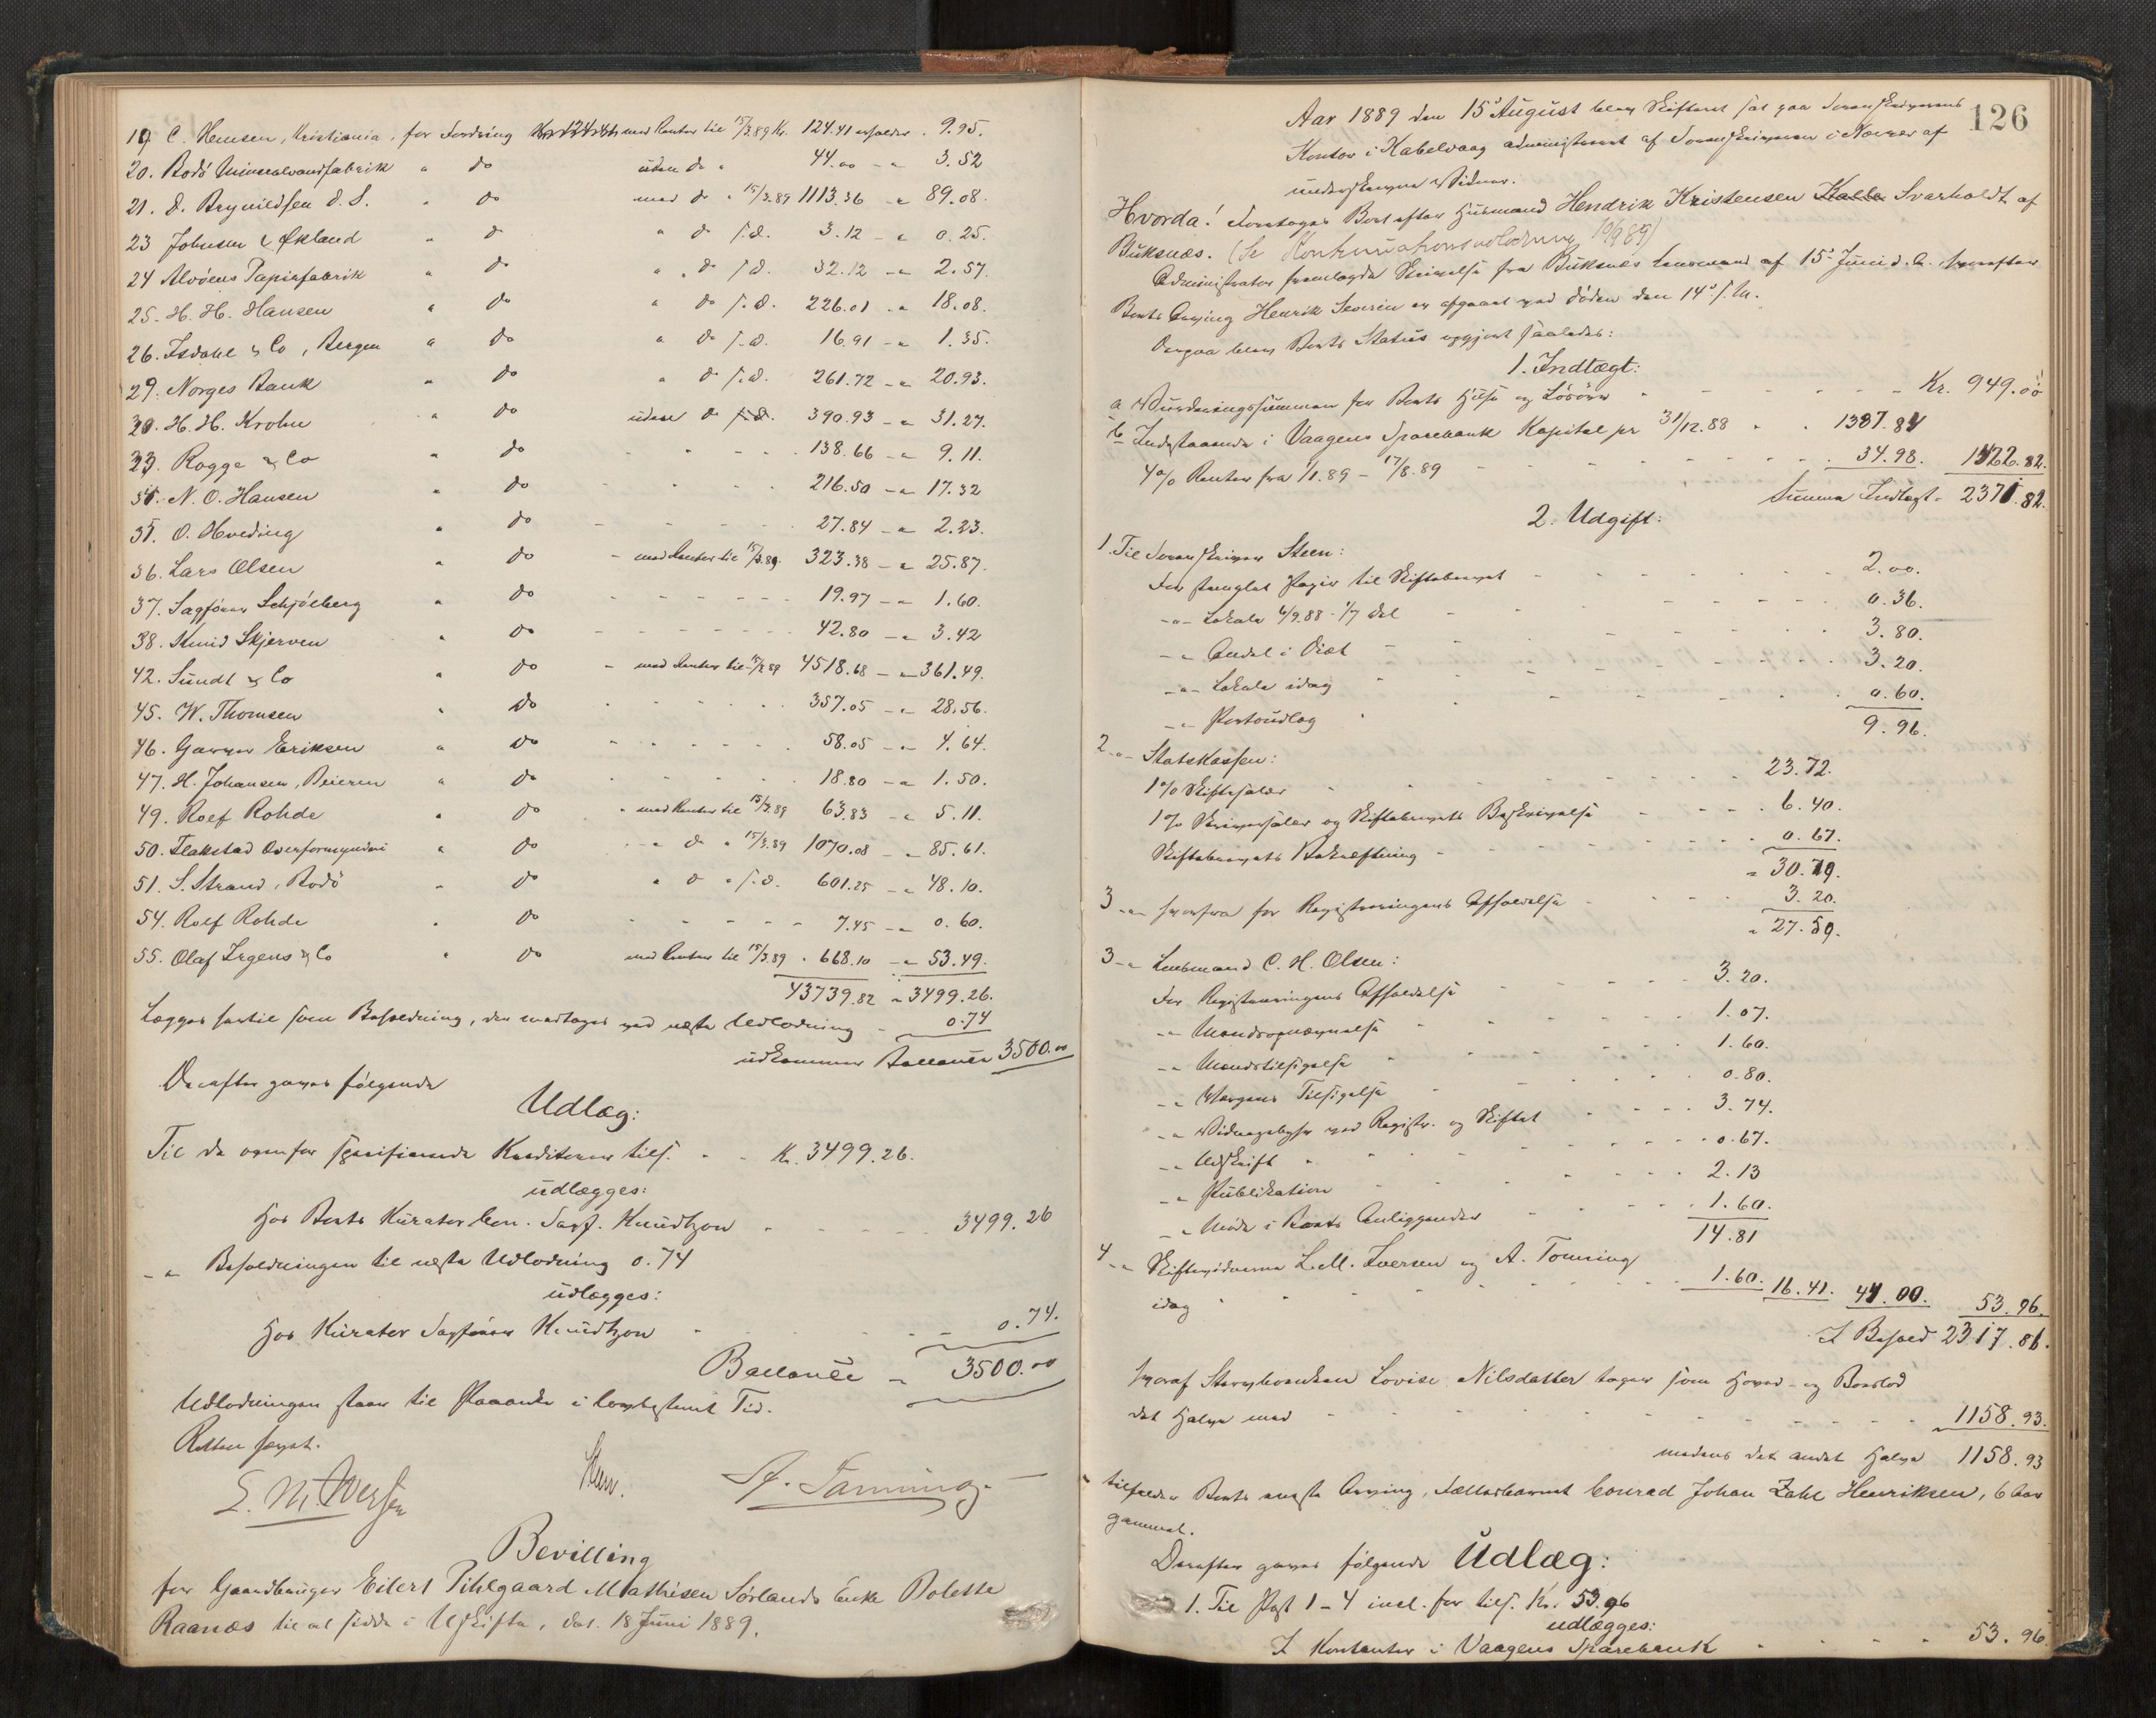 19 C. Hemsen, Kristiania, for Fordring med Renter til 15/3.89 Kr. 124.41 erholder . 9.95.
20. Bodö Mineralvandfabrik " do uden do " 44.00 -"- 3.52
21. D. Brynildsen d. S. " do med do " 15/3.89 1113.36 -"- 89.08.
23 Johnsen & Økland " do " do s.d. 3.12 -"- 0.25.
24 Alvöens Papirfabrik " do " do s.d. 32.12 -"- 2.57.
25. H. H. Hansen " do " do s.d. 226.01 -"- 18.08.
26. Isdahl & Co, Bergen " do " do s.d. 16.91 -"- 1.35.
29. Norges Bank " do " do s.d. 261.72 -"- 20.93.
30. H. H. Krohn " do uden do s.d. 390.93 -"- 31.27.
33. Rogge & Co " do 138.66 -"- 9.11.
N. O. Hansen " do 216.50 -"- 17.32
35. O. Hveding " do 27.84 -"- 2.23.
36. Lars Olsen " do - med Renter til 15/3.89. 323.38 -"- 25.87.
37. Sagförer Schjölberg " do 19.97 -"- 1.60.
38. Knud Skjerven " do 42.80 -"- 3.42
42. Sundt & Co " do - med Renter til 15/3.89 4518.68 -"- 361.49.
45. W. Thomsen " do 357.05 -"- 28.56.
46. Garver Eriksen " do 58.05 -"- 4.64.
47. H. Johansen, Beieren " do 18.80 -"- 1.50.
49. Rolf Rohde " do - med Renter til 15/3.89 63.83 -"- 5.11.
50. Flakstad Overformynderi " do -"- do " 15/3.89 1070.08 -"- 85.61.
51. S. Strand, Bodö " do " do " s.d. 601.25 -"- 48.10.
54. Rolf Rohde " do 7.45 -"- 0.60.
55. Olaf Irgens & Co " do med Renter til 15/3.89 " 668.10 -"- 53.49.
43739.82 " 3499.26.
Lægges hertil som Beholdning, der medtages ved næste Udlodning - 0.74
udkommer Ballance 3500.00
Derefter gaves følgende
Udlæg:
Til de ovenfor specificerede Kreditorer tils. - - Kr. 3499.26.
udlægges:
Hos Boets Kurator Sagf. Knudtzon - - - - 3499.26
-"- Beholdningen til næste Udlodning 0.74
udlægges:
Hos Kurator Sagförer Knudtzon - - - - 0.74.
Ballance - 3500.00
Udlodningen staar til Paaanke i lovbestemt Tid.
Retten hævet.
L. M. Iversen Steen. A. Tønning
Bevilling
for Gaardbruger Eilert Pihlgaard Mathisen Sörlands Enke Bolette
Raanæs til at sidde i Uskifte, dat. 18 Juni 1889.
126
Aar 1889 den 15de August blev Skifteret sat paa Sorenskriverens
Kontor i Kabelvaag administreret af Sorenskriveren i Nærvær af
underskrevne Vidner.
Hvorda! Foretoges Boet efter Husmand Hendrik Kristensen Kalle Svarholdt af
Buksnæs. (Se Kontinuationsudlodning 10/9 89)
Administrator fremlagde Skrivelse fra Buksnæs Lensmand af 15de Juni d. A. hvorefter
Boets Arving Henrik Severin er afgaaet ved döden den 14de s. M.
Derpaa blev Boets Status opgjort saaledes:
1. Indtægt:
a Vurderingssummen for Boets Huse og Lösöre - - - - - Kr. 949.00
b Indestaaende i Vaagens Sparebank Kapital pr 31/12.88 - - 1387.84
4% Renter fra 1/1.89 - 17/8.89 - - - - 34.98. 1422.82.
Summa Indtægt - 2371.82.
2. Udgift:
1. Til Sorenskriver Steen:
For stemplet Papir til Skiftebrevet - - - - 2.00.
-"- Lokale 4/9.88 - 1/7 Del - - - - 0.36.
-"- Andel i Diæt - - - - 3.80.
-"- Lokale idag - - - - 3.20.
-"- Portoudlæg - - - - 0.60.
9.96.
2 -"- Statskassen:
1% Skiftesalær - - - - 23.72.
1% Skriversalær og Skiftebrevets Beskrivelse - - - 6.40.
Skiftebrevets Bekræftning - - - - 0.67.
" 30.79.
3 -"- herfra for Registreringens Afholdelse - - - 3.20.
" 27.59.
3 -"- Lensmand C. H. Olsen:
For Registreringens Afholdelse - - - 3.20.
-"- Mændsopnævnelse - - - 1.07.
-"- Mændstilsigelse - - - 1.60.
-"- Værgens Tilsigelse - - - 0.80.
-"- Vidnegebyr ved Registr. og Skiftet - - - 3.74.
-"- Udskrift - - - 0.67.
-"- Publikation - - - 2.13
-"- Møde i Boets Anliggender - - - 1.60.
14.81
4 -"- Skiftevidnerne L. M. Iversen og A. Tønning
idag - - - 1.60. 16.41. 44.00. 53.96.
I Behold 2317.86.
hvoraf Stervboenken Lovise Nilsdatter tager som Hoved- og Boeslod
det Halve med - - - - 1158.93.
medens det andet Halve 1158.93
tilfalder Boets eneste Arving, Fællesbarnet Conrad Johan Zahl Henriksen, 6 Aar
gammel.
Derefter gaves følgende Udlæg:
1. Til Post 1-4 incl. for tils. Kr. 53.96
udlægges:
I Kontanter i Vaagens Sparebank - - - - 53.96.